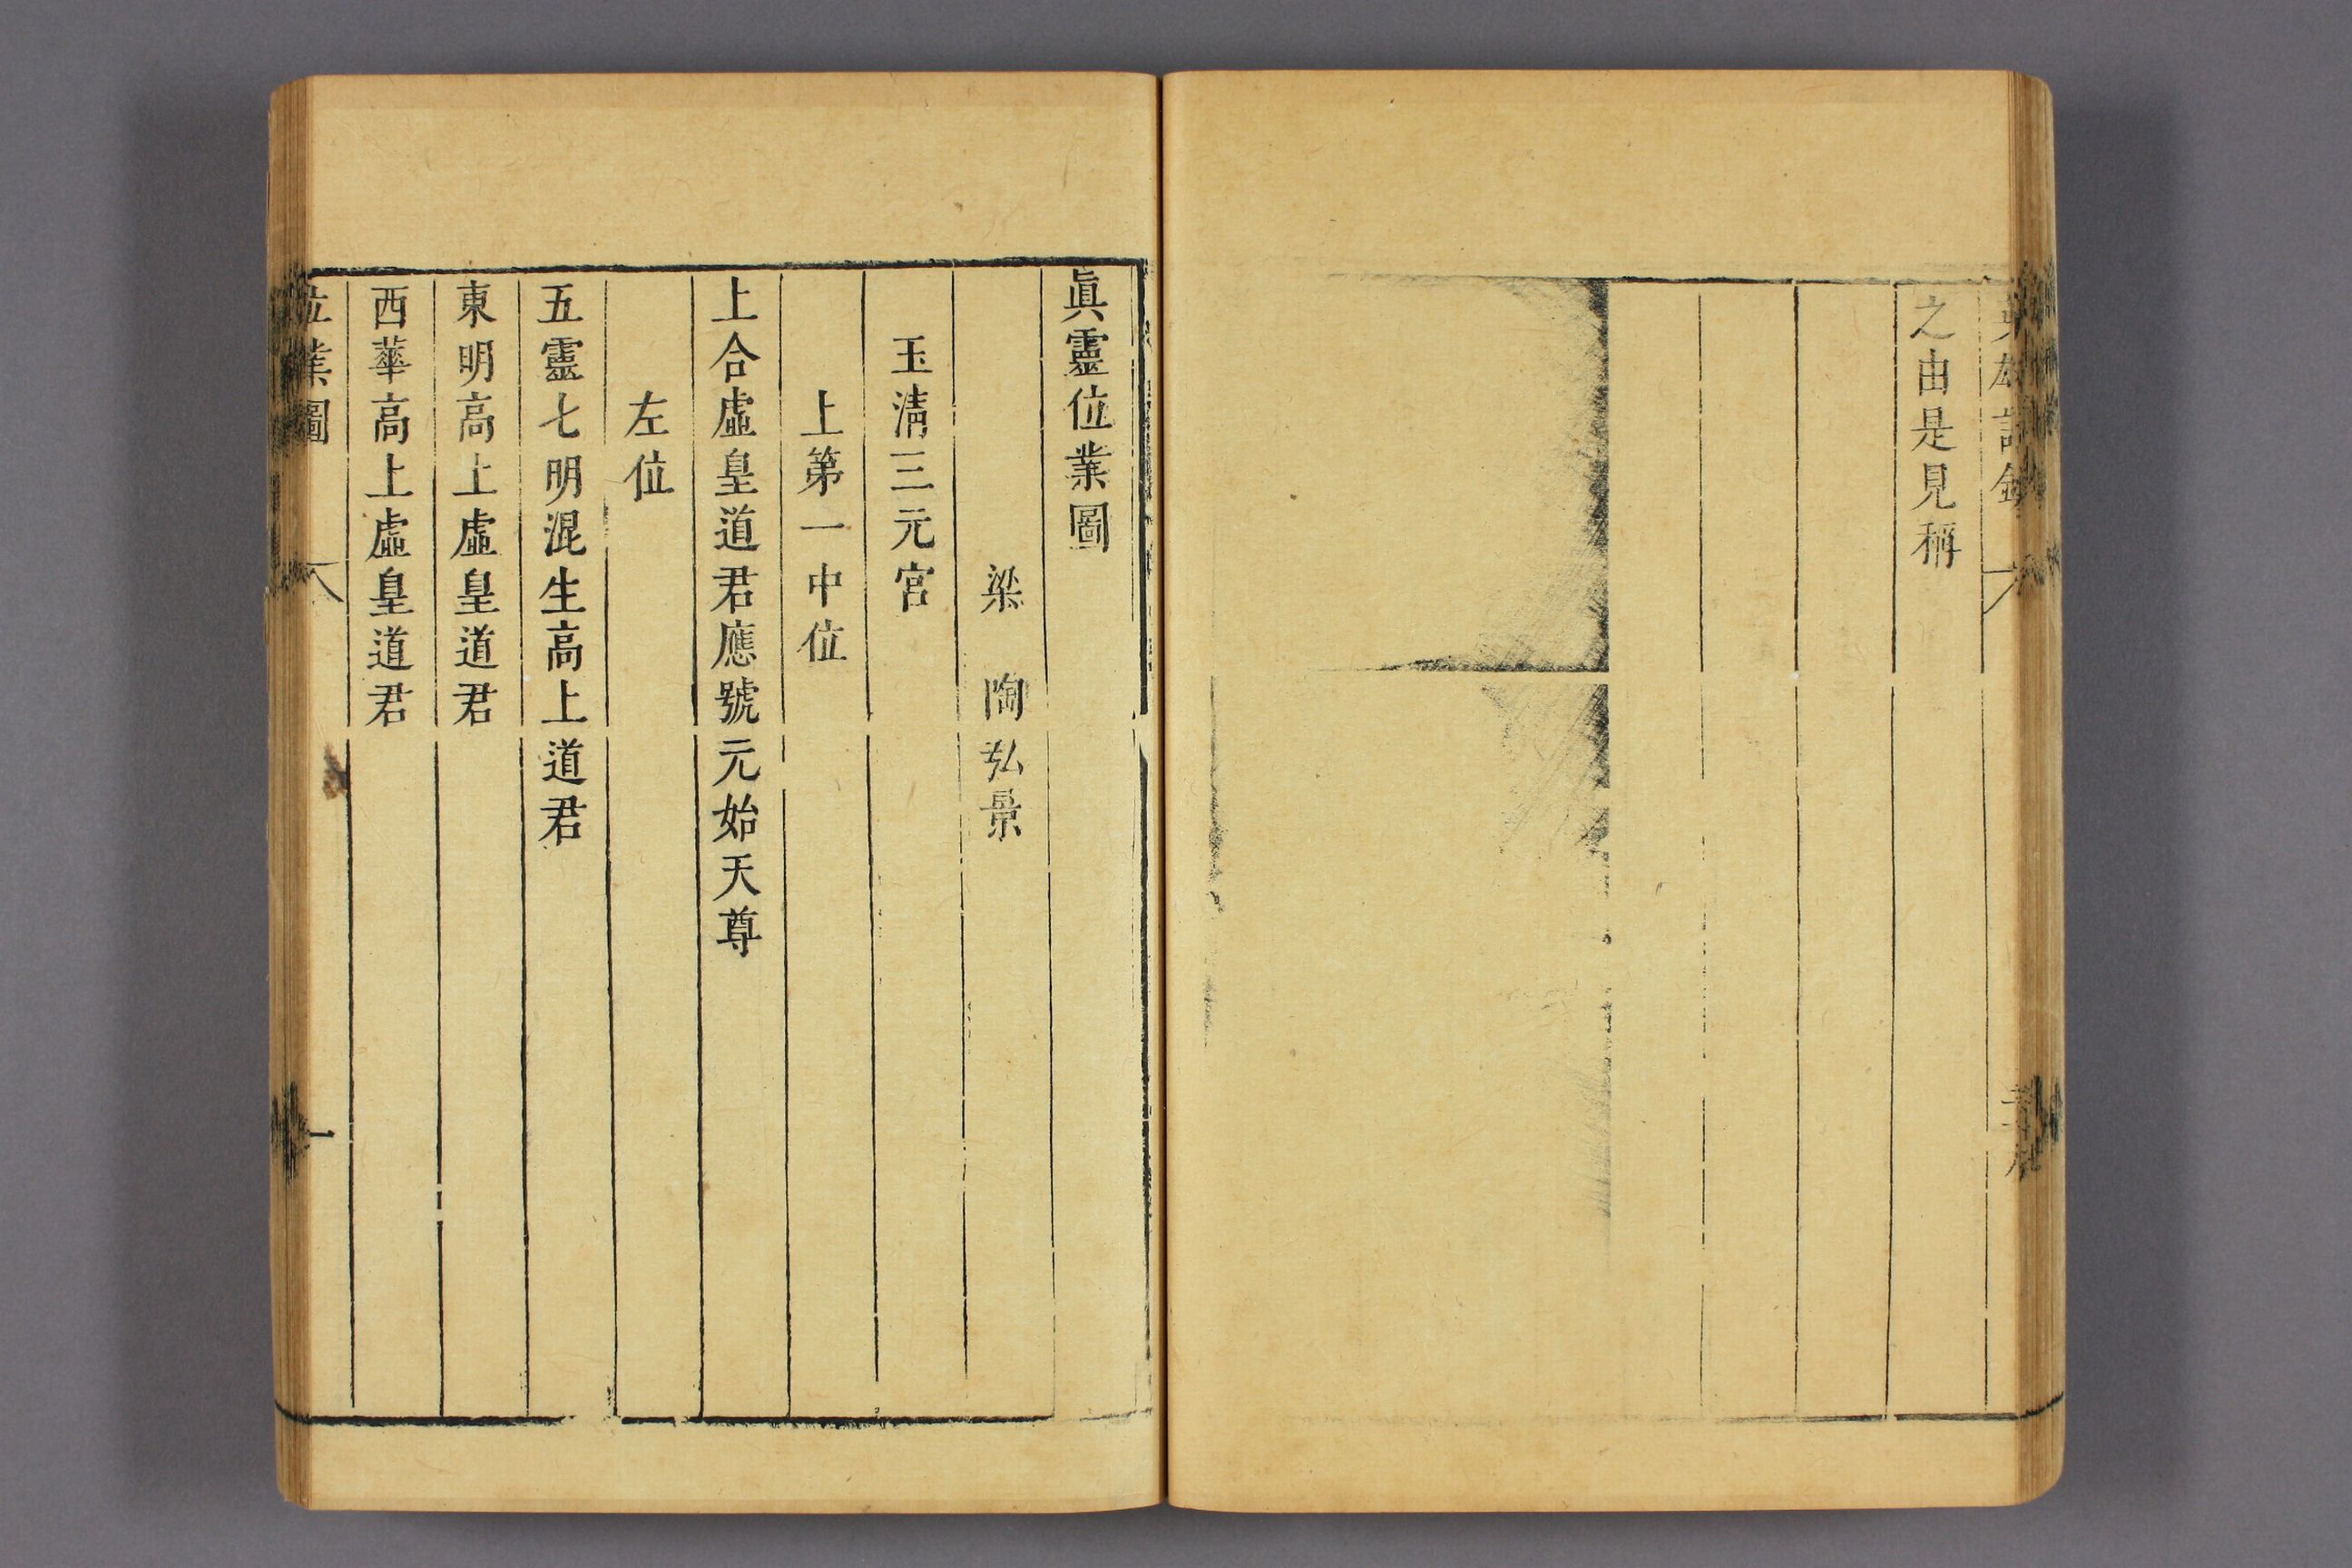 英雄記鈔
之由是見稱
眞靈位業圖
梁　陶弘景
玉清三元宮
上第一中位
上合虛皇道君應號元始天尊
左位
五靈七明混生高上道君
東明高上虛皇道君
西華高上虛皇道君
位業圖
一